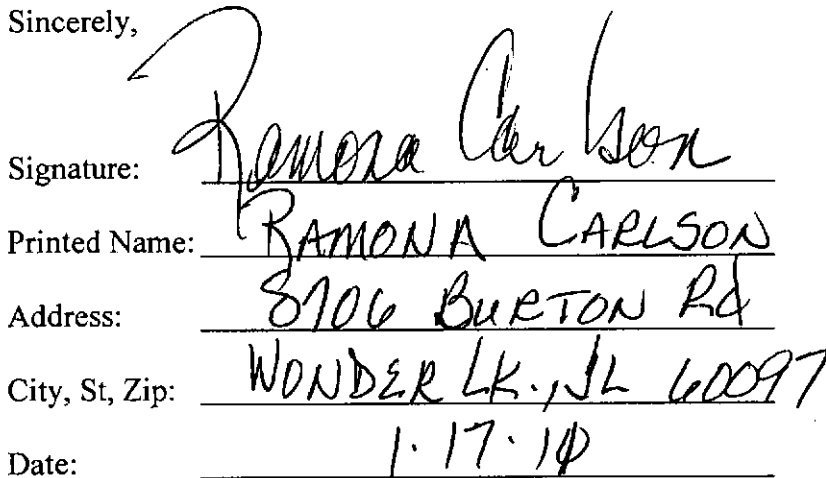 Sincerely,
Signature: Ramona Carlson
Printed Name: RAMONA CARLSON
Address: 8706 BURTON Rd
City, St, Zip: WONDER LK., IL 60097
Date: 1.17.10